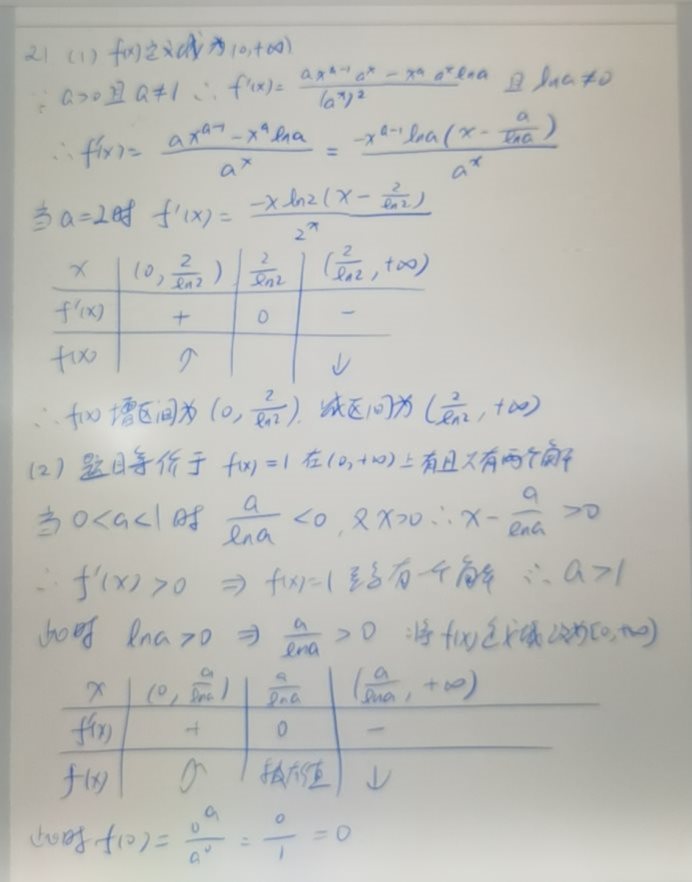 21 (1) f(x)定义域为(0,+∞)
∵a>0且a≠1 ∴f'(x)= (ax^(a-1)a^x - x^a a^x lna)/(a^x)^2 且 lna≠0
∴f'(x)= (ax^(a-1) - x^a lna)/a^x = (-x^(a-1) lna(x - a/lna))/a^x
当a=2时 f'(x)= (-x ln2(x - 2/ln2))/2^x
x | (0, 2/ln2) | 2/ln2 | (2/ln2, +∞)
f'(x) | + | 0 | -
f(x) | ↑ | | ↓
∴f(x)增区间为(0, 2/ln2). 减区间为(2/ln2, +∞)
(2) 题目等价于 f(x)=1 在(0,+∞)上有且只有两个解
当0<a<1时 a/lna <0, 又x>0 ∴x - a/lna >0
∴f'(x)>0 ⇒ f(x)=1 至多有一个解 ∴a>1
此时 lna>0 ⇒ a/lna >0 将f(x)定义域改为[0,+∞)
x | (0, a/lna) | a/lna | (a/lna, +∞)
f'(x) | + | 0 | -
f(x) | ↑ | 极大值 | ↓
此时f(0)= 0^a/a^0 = 0/1 =0